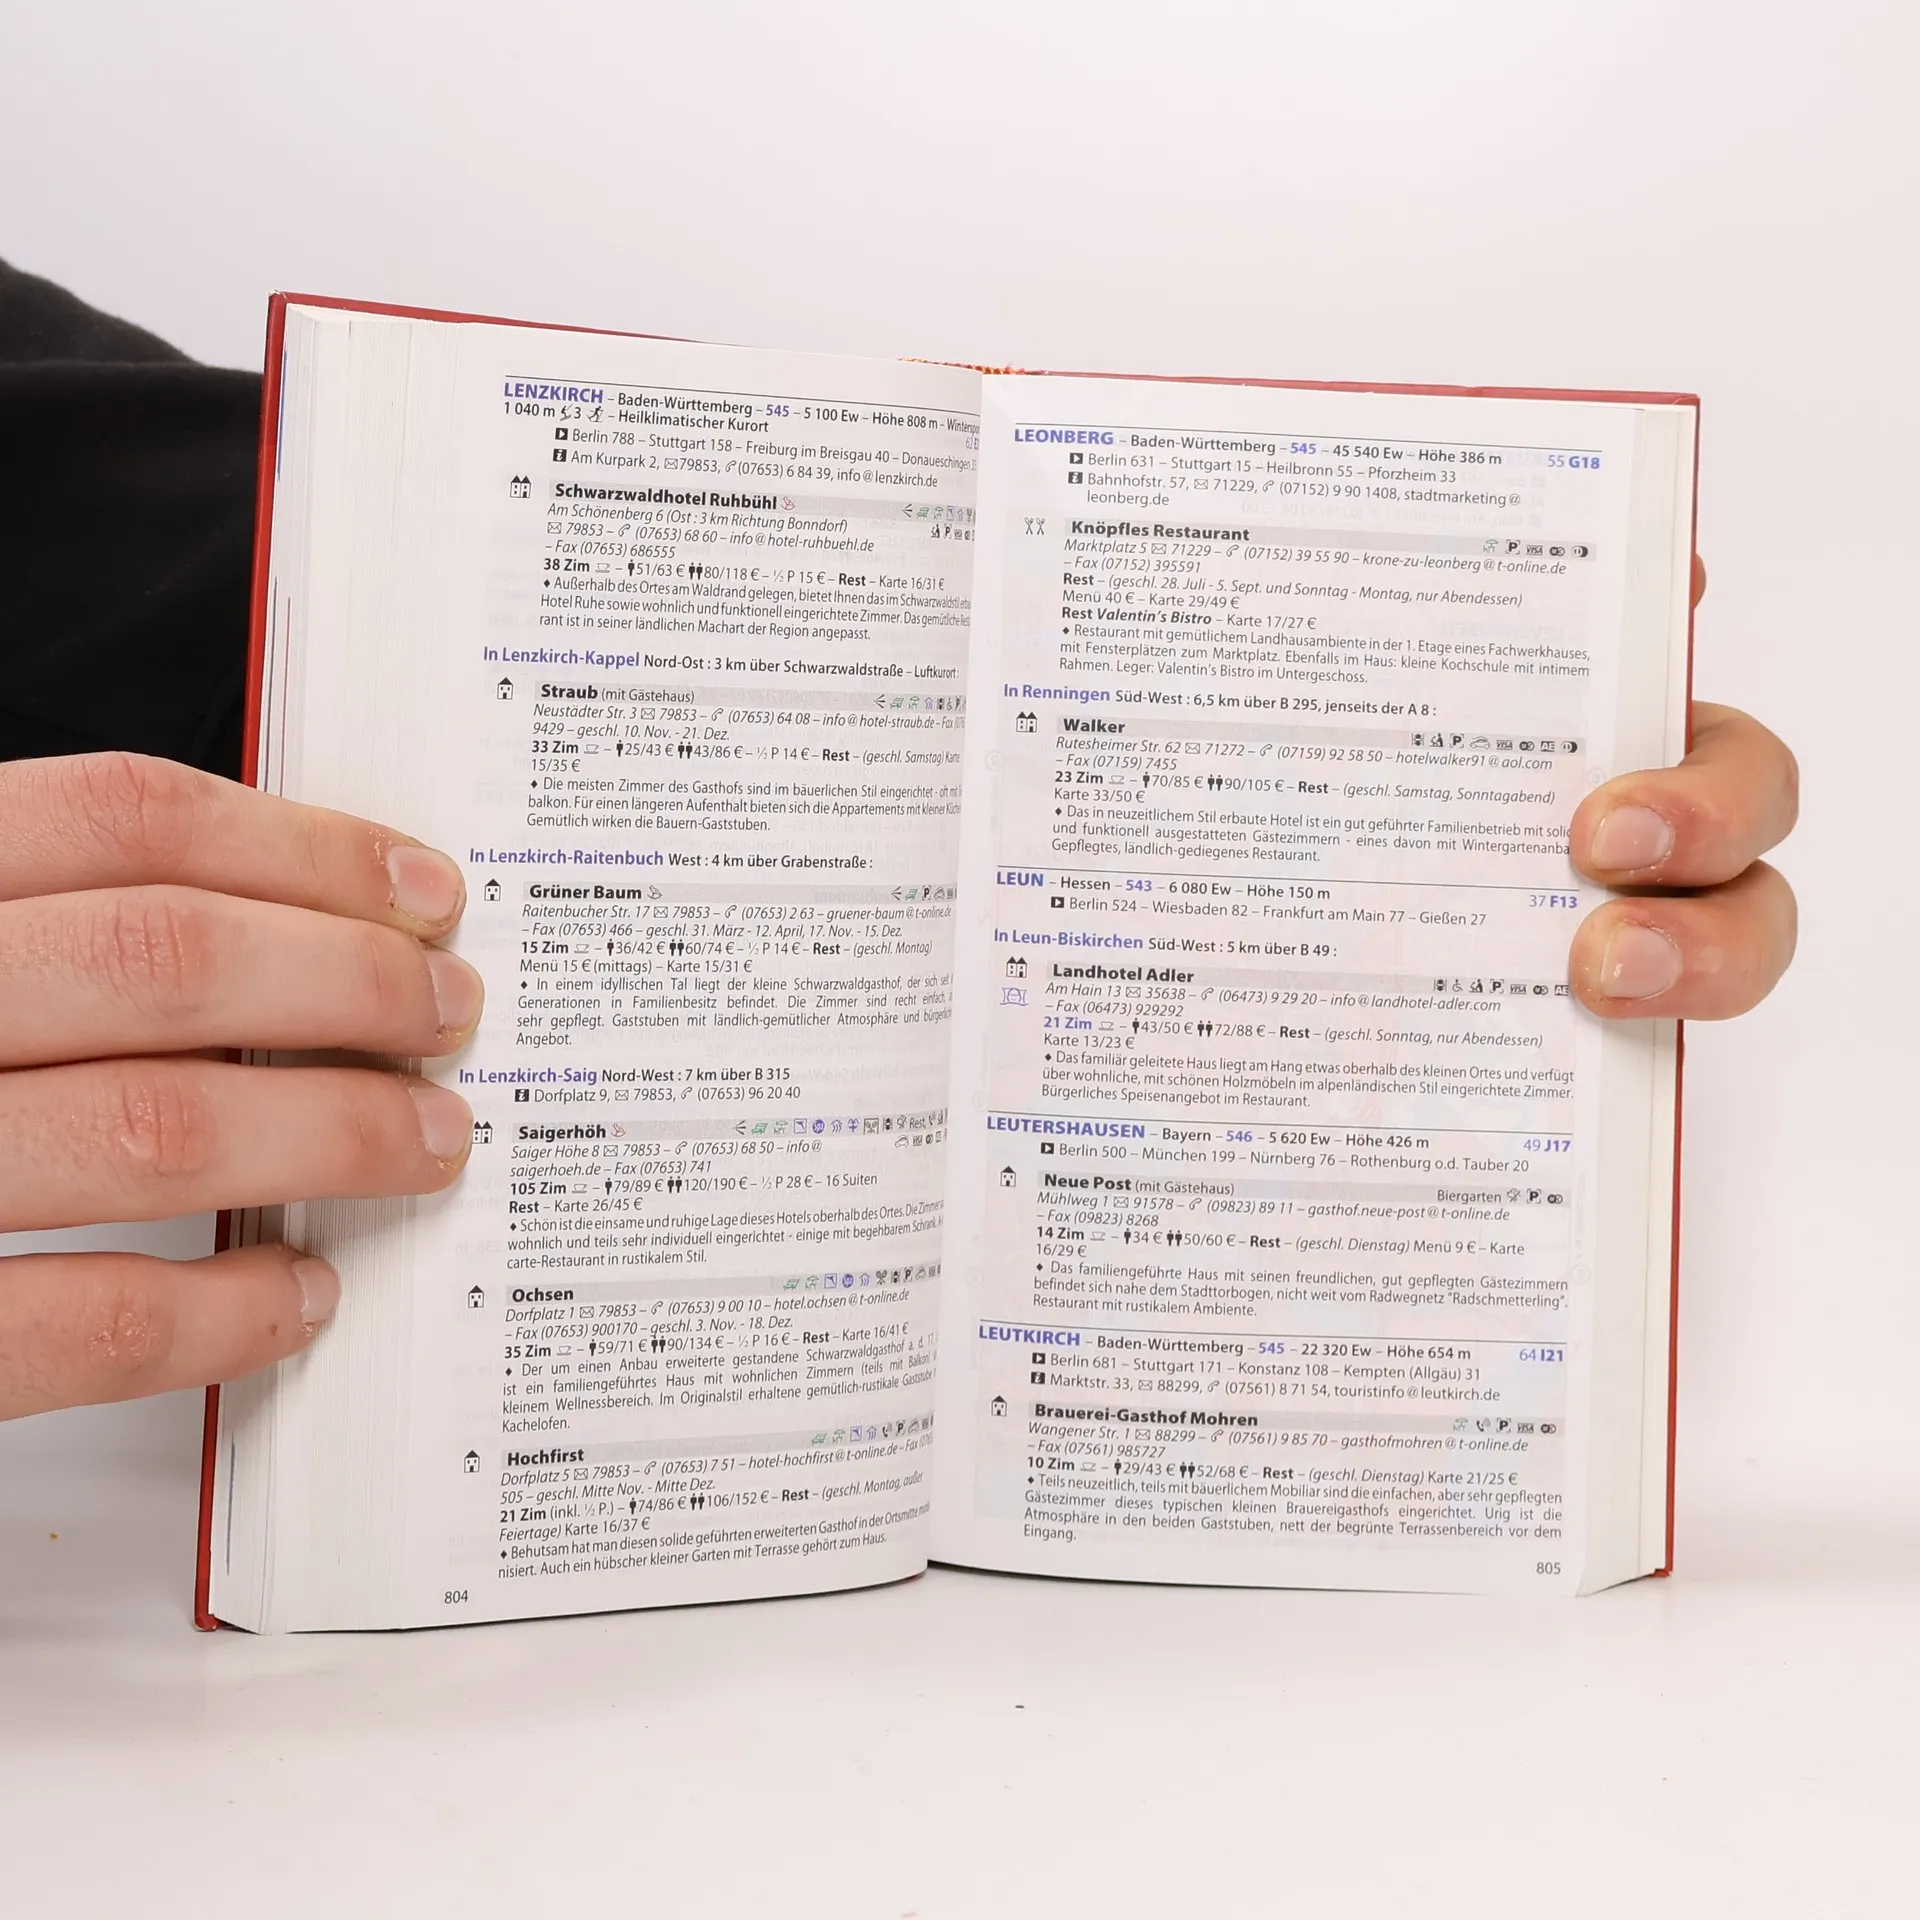 LENZKIRCH – Baden-Württemberg – 545 – 5 100 Ew – Höhe 808 m –
1 040 m 3 – Heilklimatischer Kurort
Berlin 788 – Stuttgart 158 – Freiburg im Breisgau 40 – Donaueschingen
Am Kurpark 2, 79853, (07653) 6 84 39, info@lenzkirch.de
Schwarzwaldhotel Ruhbühl
Am Schönenberg 6 (Ost : 3 km Richtung Bonndorf)
79853 – (07653) 68 60 – info@hotel-ruhbuehl.de
– Fax (07653) 686555
38 Zim – 51/63 € 80/118 € – ½ P 15 € – Rest – Karte 16/31 €
♦ Außerhalb des Ortes am Waldrand gelegen, bietet Ihnen das im Schwarzwaldstil
Hotel Ruhe sowie wohnlich und funktionell eingerichtete Zimmer. Das gemütliche
rant ist in seiner ländlichen Machart der Region angepasst.
In Lenzkirch-Kappel Nord-Ost : 3 km über Schwarzwaldstraße – Luftkurort:
Straub (mit Gästehaus)
Neustädter Str. 3 79853 – (07653) 64 08 – info@hotel-straub.de – Fax
9429 – geschl. 10. Nov. - 21. Dez.
33 Zim – 25/43 € 43/86 € – ½ P 14 € – Rest – (geschl. Samstag) Karte
15/35 €
♦ Die meisten Zimmer des Gasthofs sind im bäuerlichen Stil eingerichtet - oft mit
balkon. Für einen längeren Aufenthalt bieten sich die Appartements mit kleiner
Gemütlich wirken die Bauern-Gaststuben.
In Lenzkirch-Raitenbuch West : 4 km über Grabenstraße :
Grüner Baum
Raitenbucher Str. 17 79853 – (07653) 2 63 – gruener-baum@t-online.de
– Fax (07653) 466 – geschl. 31. März - 12. April, 17. Nov. - 15. Dez.
15 Zim – 36/42 € 60/74 € – ½ P 14 € – Rest – (geschl. Montag)
Menü 15 € (mittags) – Karte 15/31 €
♦ In einem idyllischen Tal liegt der kleine Schwarzwaldgasthof, der sich seit
Generationen in Familienbesitz befindet. Die Zimmer sind recht einfach,
sehr gepflegt. Gaststuben mit ländlich-gemütlicher Atmosphäre und
Angebot.
In Lenzkirch-Saig Nord-West : 7 km über B 315
Dorfplatz 9, 79853, (07653) 96 20 40
Saigerhöh Rest
Saiger Höhe 8 79853 – (07653) 68 50 – info@
saigerhoeh.de – Fax (07653) 741
105 Zim – 79/89 € 120/190 € – ½ P 28 € – 16 Suiten
Rest – Karte 26/45 €
♦ Schön ist die einsame und ruhige Lage dieses Hotels oberhalb des Ortes. Die Zimmer
wohnlich und teils sehr individuell eingerichtet - einige mit begehbarem Schrank.
carte-Restaurant in rustikalem Stil.
Ochsen
Dorfplatz 1 79853 – (07653) 9 00 10 – hotel.ochsen@t-online.de
– Fax (07653) 900170 – geschl. 3. Nov. - 18. Dez.
35 Zim – 59/71 € 90/134 € – ½ P 16 € – Rest – Karte 16/41 €
♦ Der um einen Anbau erweiterte gestandene Schwarzwaldgasthof a. d. 17.
ist ein familiengeführtes Haus mit wohnlichen Zimmern (teils mit Balkon)
kleinem Wellnessbereich. Im Originalstil erhaltene gemütlich-rustikale Gaststube
Kachelofen.
Hochfirst
Dorfplatz 5 79853 – (07653) 7 51 – hotel-hochfirst@t-online.de – Fax
505 – geschl. Mitte Nov. - Mitte Dez.
21 Zim (inkl. ½ P.) – 74/86 € 106/152 € – Rest – (geschl. Montag, außer
Feiertage) Karte 16/37 €
♦ Behutsam hat man diesen solide geführten erweiterten Gasthof in der Ortsmitte
nisiert. Auch ein hübscher kleiner Garten mit Terrasse gehört zum Haus.
804
LEONBERG – Baden-Württemberg – 545 – 45 540 Ew – Höhe 386 m 55 G18
Berlin 631 – Stuttgart 15 – Heilbronn 55 – Pforzheim 33
Bahnhofstr. 57, 71229, (07152) 9 90 1408, stadtmarketing@
leonberg.de
Knöpfles Restaurant
Marktplatz 5 71229 – (07152) 39 55 90 – krone-zu-leonberg@t-online.de
– Fax (07152) 395591
Rest – (geschl. 28. Juli - 5. Sept. und Sonntag - Montag, nur Abendessen)
Menü 40 € – Karte 29/49 €
Rest Valentin's Bistro – Karte 17/27 €
♦ Restaurant mit gemütlichem Landhausambiente in der 1. Etage eines Fachwerkhauses,
mit Fensterplätzen zum Marktplatz. Ebenfalls im Haus: kleine Kochschule mit intimem
Rahmen. Leger: Valentin's Bistro im Untergeschoss.
In Renningen Süd-West : 6,5 km über B 295, jenseits der A 8 :
Walker
Rutesheimer Str. 62 71272 – (07159) 92 58 50 – hotelwalker91@aol.com
– Fax (07159) 7455
23 Zim – 70/85 € 90/105 € – Rest – (geschl. Samstag, Sonntagabend)
Karte 33/50 €
♦ Das in neuzeitlichem Stil erbaute Hotel ist ein gut geführter Familienbetrieb mit
und funktionell ausgestatteten Gästezimmern - eines davon mit Wintergartenanba
Gepflegtes, ländlich-gediegenes Restaurant.
LEUN – Hessen – 543 – 6 080 Ew – Höhe 150 m 37 F13
Berlin 524 – Wiesbaden 82 – Frankfurt am Main 77 – Gießen 27
In Leun-Biskirchen Süd-West : 5 km über B 49 :
Landhotel Adler
Am Hain 13 35638 – (06473) 9 29 20 – info@landhotel-adler.com
– Fax (06473) 929292
21 Zim – 43/50 € 72/88 € – Rest – (geschl. Sonntag, nur Abendessen)
Karte 13/23 €
♦ Das familiär geleitete Haus liegt am Hang etwas oberhalb des kleinen Ortes und verfügt
über wohnliche, mit schönen Holzmöbeln im alpenländischen Stil eingerichtete Zimmer.
Bürgerliches Speisenangebot im Restaurant.
LEUTERSHAUSEN – Bayern – 546 – 5 620 Ew – Höhe 426 m 49 J17
Berlin 500 – München 199 – Nürnberg 76 – Rothenburg o.d. Tauber 20
Neue Post (mit Gästehaus) Biergarten
Mühlweg 1 91578 – (09823) 89 11 – gasthof.neue-post@t-online.de
– Fax (09823) 8268
14 Zim – 34 € 50/60 € – Rest – (geschl. Dienstag) Menü 9 € – Karte
16/29 €
♦ Das familiengeführte Haus mit seinen freundlichen, gut gepflegten Gästezimmern
befindet sich nahe dem Stadttorbogen, nicht weit vom Radwegnetz "Radschmetterling".
Restaurant mit rustikalem Ambiente.
LEUTKIRCH – Baden-Württemberg – 545 – 22 320 Ew – Höhe 654 m 64 I21
Berlin 681 – Stuttgart 171 – Konstanz 108 – Kempten (Allgäu) 31
Marktstr. 33, 88299, (07561) 8 71 54, touristinfo@leutkirch.de
Brauerei-Gasthof Mohren
Wangener Str. 1 88299 – (07561) 9 85 70 – gasthofmohren@t-online.de
– Fax (07561) 985727
10 Zim – 29/43 € 52/68 € – Rest – (geschl. Dienstag) Karte 21/25 €
♦ Teils neuzeitlich, teils mit bäuerlichem Mobiliar sind die einfachen, aber sehr gepflegten
Gästezimmer dieses typischen kleinen Brauereigasthofs eingerichtet. Urig ist die
Atmosphäre in den beiden Gaststuben, nett der begrünte Terrassenbereich vor dem
Eingang.
805